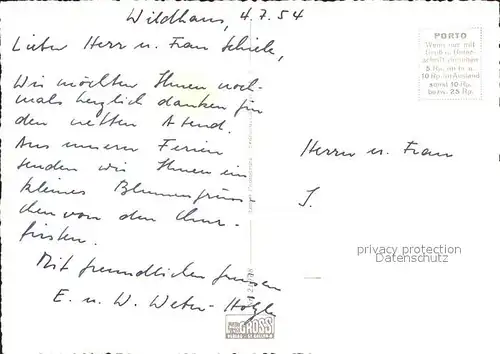 Wildhaus, 4.7.54
Lieber Herr u. Frau Schiele,
Wir möchten Ihnen noch-
mals herzlich danken für
den netten Abend.
Aus unseren Ferien
senden wir Ihnen ein
kleines Blumengrüss-
chen von den Chur-
firsten.
Mit freundlichen Grüssen
E. u. W. Weber-
PORTO
Wenn nur mit
5 Rp.
10 Rp. Ausland
sonst 10 Rp.
bezw. 25 Rp.
Herrn u. Frau
S.
privacy protection
Datenschutz
GROSS